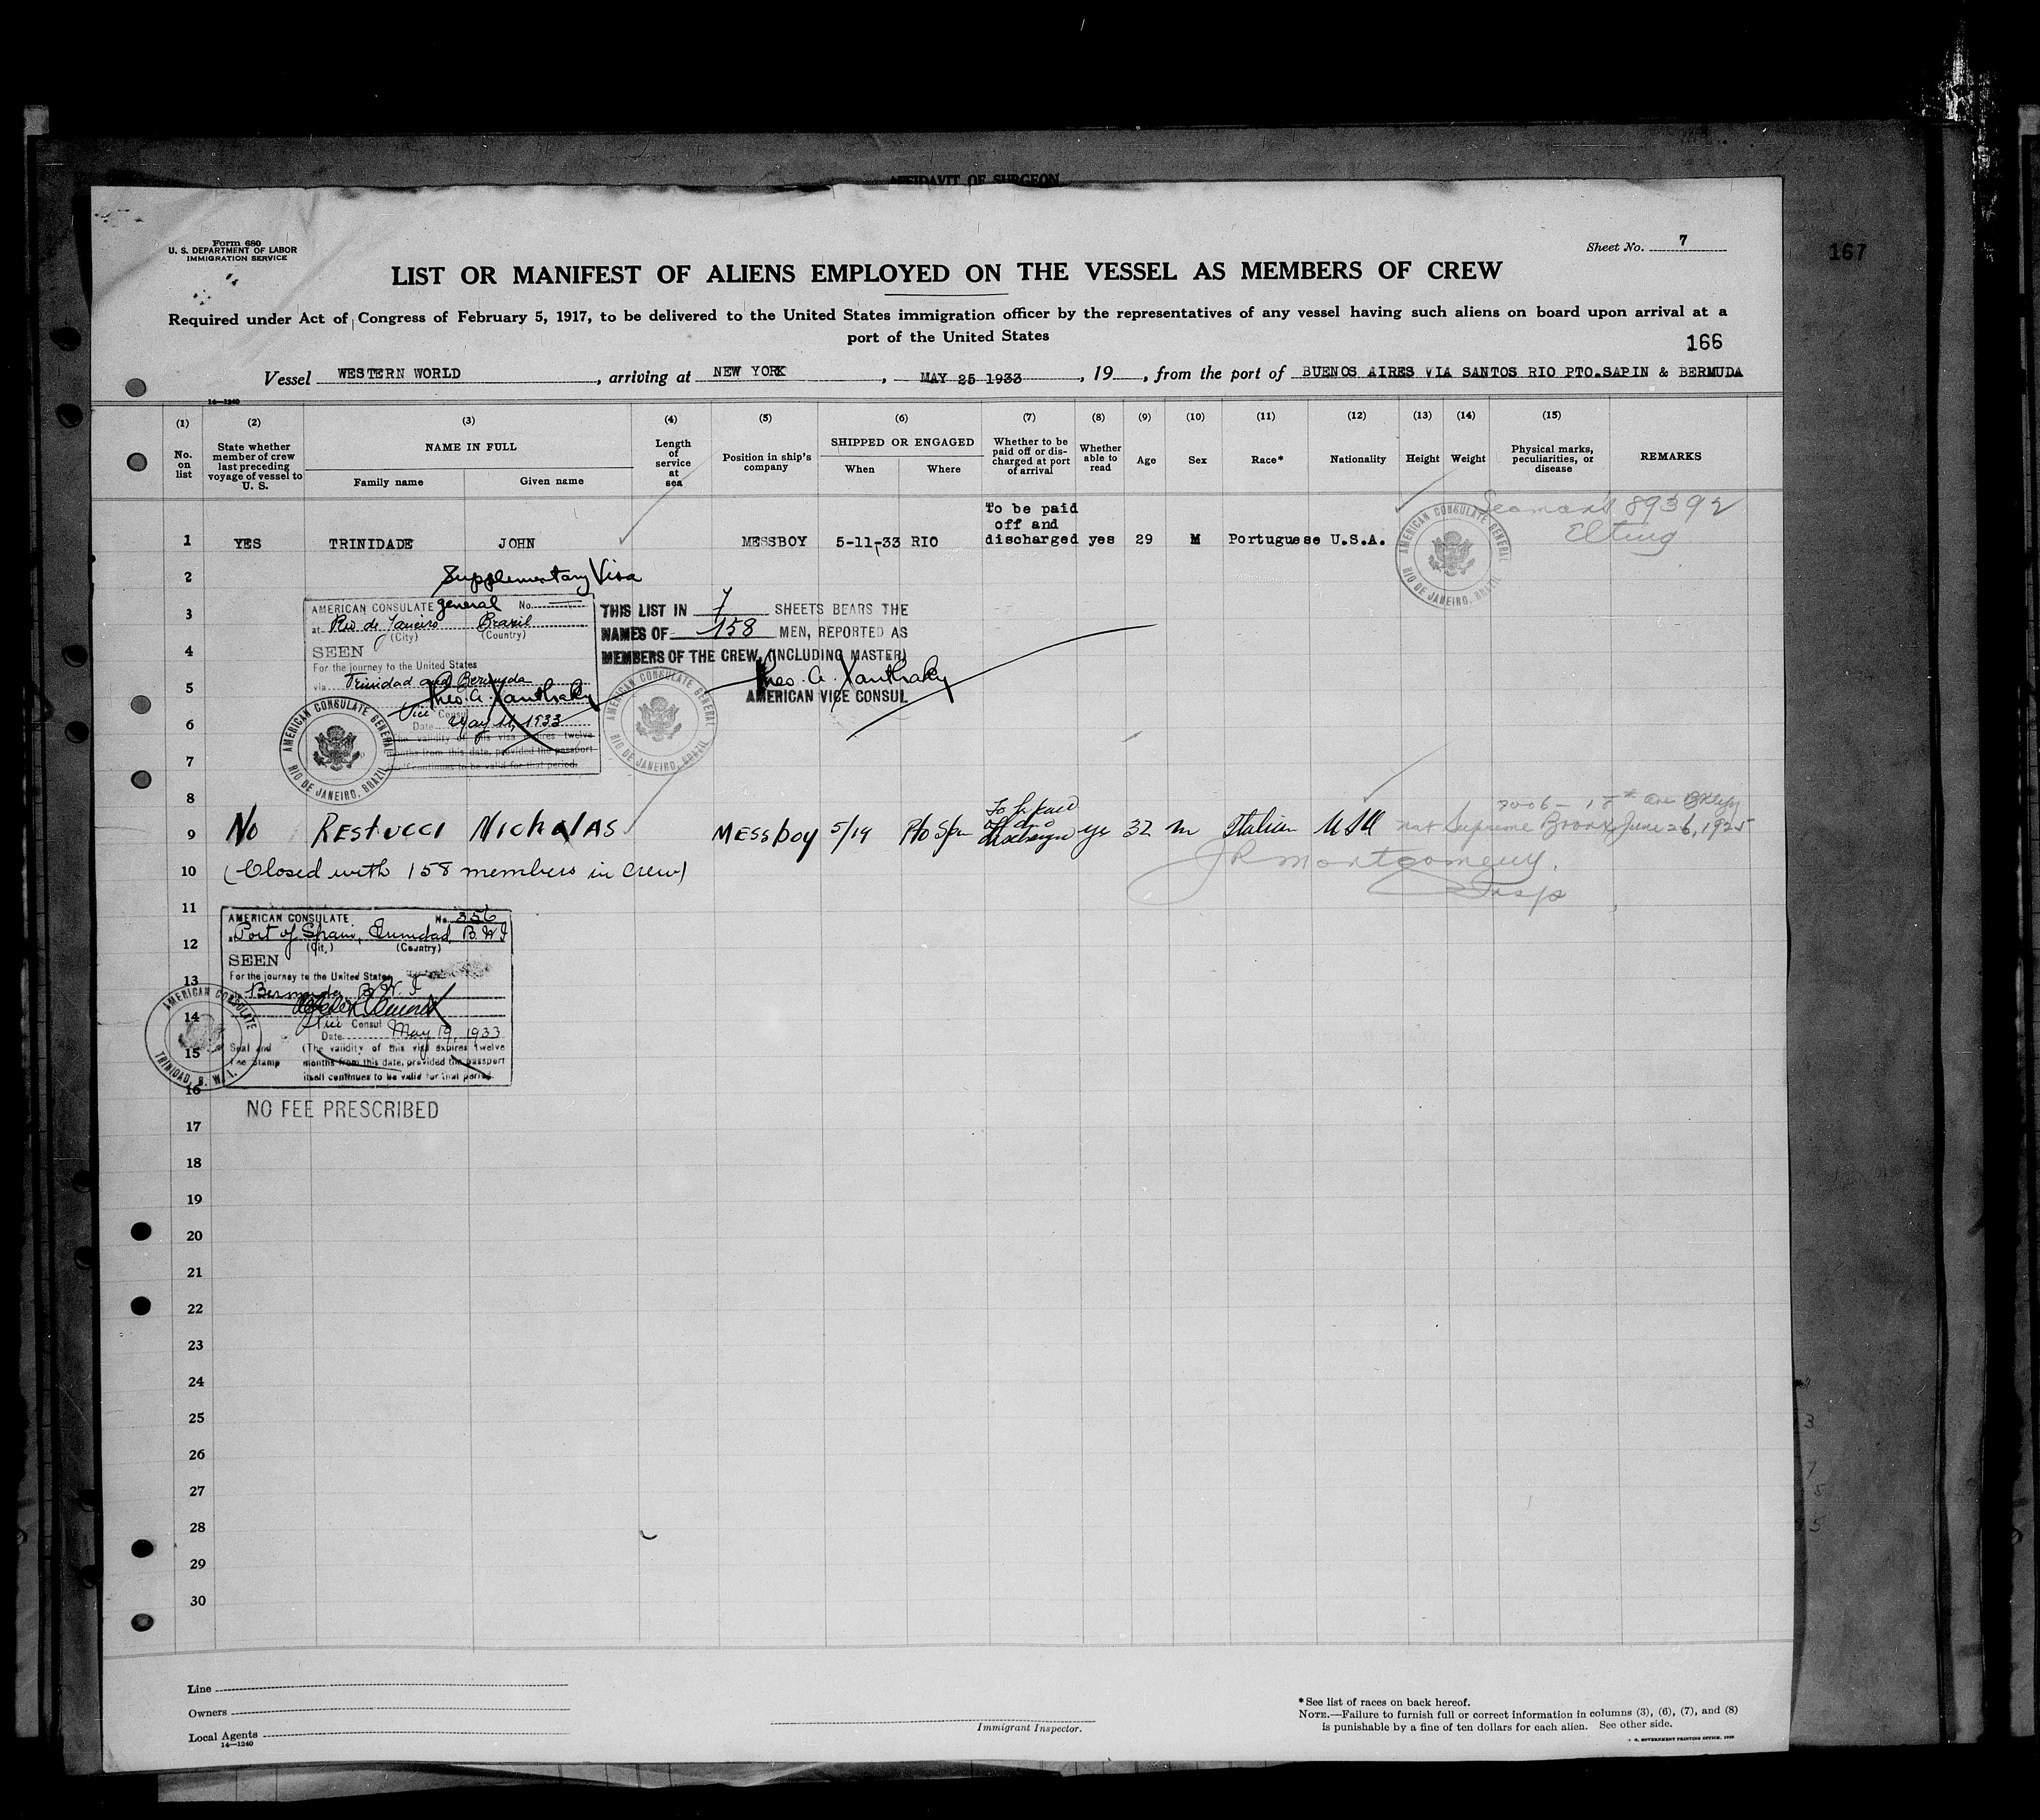 AFFIDAVIT OF SURGEON
Form 680
U. S. DEPARTMENT OF LABOR
IMMIGRATION SERVICE
Sheet No. 7
167
LIST OR MANIFEST OF ALIENS EMPLOYED ON THE VESSEL AS MEMBERS OF CREW
Required under Act of Congress of February 5, 1917, to be delivered to the United States immigration officer by the representatives of any vessel having such aliens on board upon arrival at a
port of the United States
166
Vessel WESTERN WORLD, arriving at NEW YORK, MAY 25 1933, 19, from the port of BUENOS AIRES VIA SANTOS RIO PTO.SAPIN & BERMUDA
14—1240
(1) (2) (3) (4) (5) (6) (7) (8) (9) (10) (11) (12) (13) (14) (15)
No. on list
State whether member of crew last preceding voyage of vessel to U. S.
NAME IN FULL
Family name Given name
Length of service at sea
Position in ship's company
SHIPPED OR ENGAGED
When Where
Whether to be paid off or discharged at port of arrival
Whether able to read
Age Sex Race* Nationality Height Weight
Physical marks, peculiarities, or disease
REMARKS
Seaman's 89392
Elting
1 YES TRINIDADE JOHN MESSBOY 5-11-33 RIO To be paid off and discharged yes 29 M Portuguese U.S.A.
AMERICAN CONSULATE GENERAL RIO DE JANEIRO, BRAZIL
2
Supplementary Visa
3
AMERICAN CONSULATE general No.
at Rio de Janeiro Brazil
(City) (Country)
4
SEEN
For the journey to the United States
via Trinidad and Bermuda
5
Theo. A. Xanthaky
Vice Consul
6
Date May 11, 1933
The validity of this visa expires twelve
months from this date, provided the passport
7
itself continues to be valid for that period.
AMERICAN CONSULATE GENERAL RIO DE JANEIRO, BRAZIL
THIS LIST IN 7 SHEETS BEARS THE
NAMES OF 158 MEN, REPORTED AS
MEMBERS OF THE CREW, (INCLUDING MASTER)
Theo. A. Xanthaky
AMERICAN VICE CONSUL
AMERICAN CONSULATE GENERAL RIO DE JANEIRO, BRAZIL
8
9 No RESTUCCI NICHOLAS MESSboy 5/19 Pto Spn To be paid off and discharged ye 32 m Italian USA
Nat Supreme Bronx June 26, 1925
JR Montgomery
Insp
10 (Closed with 158 members in crew)
11
AMERICAN CONSULATE No. 356
Port of Spain, Trinidad, B.W.I
12
(City) (Country)
SEEN
For the journey to the United States
13
Bermuda B.W.I
14
Vice Consul
Date May 19, 1933
15
Seal and Fee Stamp
(The validity of this visa expires twelve
months from this date, provided the passport
itself continues to be valid for that period.
AMERICAN CONSULATE TRINIDAD, B. W. I.
16
NO FEE PRESCRIBED
17
18
19
20
21
22
23
24
25
26
27
28
29
30
Line
Owners
Local Agents
14—1240
Immigrant Inspector.
*See list of races on back hereof.
NOTE.—Failure to furnish full or correct information in columns (3), (6), (7), and (8)
is punishable by a fine of ten dollars for each alien. See other side.